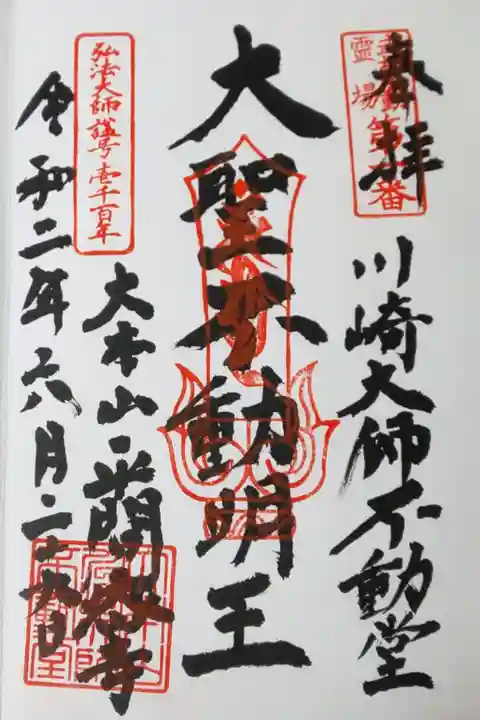 奉拝
霊場第 番
川崎大師不動堂
大聖不動明王
弘法大師諡号壱千百年
大本山平間寺
令和二年六月二十八日